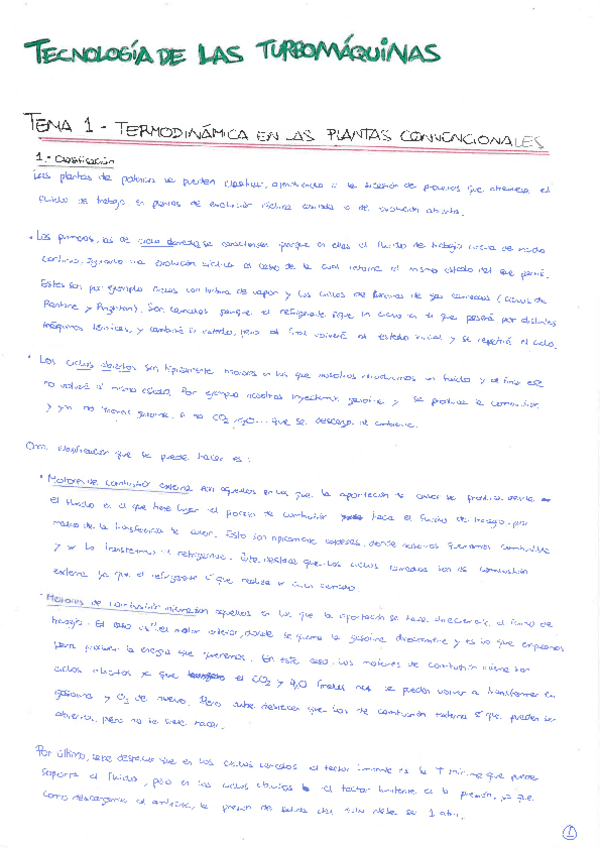 TECNOLOGÍA DE LAS TURBOMÁQUINAS
TEMA 1 - TERMODINÁMICA EN LAS PLANTAS CONVENCIONALES
1.- Clasificación
Las plantas de potencia se pueden clasificar, atendiendo a la sucesión de procesos que atraviesa el
fluido de trabajo en plantas de evolución cíclica cerrada o de evolución abierta.
• Las primeras, las de ciclo cerrado, se caracterizan porque en ellas el fluido de trabajo circula de modo
continuo, siguiendo una evolución cíclica al cabo de la cual retorna al mismo estado del que partió.
Estos son por ejemplo ciclos con turbina de vapor y los ciclos de turbinas de gas cerrados (ciclos de
Rankine y Brayton). Son cerrados porque el refrigerante sigue un ciclo en el que pasará por distintas
máquinas térmicas, y cambiará su estado, pero al final volverá al estado inicial y se repetirá el ciclo.
• Los ciclos abiertos son típicamente motores en los que nosotros introducimos un fluido y al final este
no volverá al mismo estado. Por ejemplo nosotros inyectamos gasolina y se produce la combustión
y ya no tenemos gasolina, si no CO2, H2O... que se descarga al ambiente.
Otra clasificación que se puede hacer es:
• Motores de combustión externa son aquellos en los que la aportación de calor se produce desde
el fluido en el que tiene lugar el proceso de combustión hacia el fluido de trabajo, por
medio de la transferencia de calor. Esto son típicamente calderas, donde nosotros quemamos combustible
y se lo transferimos al refrigerante. Cabe destacar que los ciclos cerrados son de combustión
externa ya que el refrigerante es que realiza un ciclo cerrado.
• Motores de combustión interna son aquellos en los que la aportación se hace directamente al fluido de
trabajo. El caso es el motor anterior, donde se quema la gasolina directamente y es lo que empleamos
para producir la energía que queremos. En este caso los motores de combustión interna son
ciclos abiertos ya que el CO2 y H2O finales no se pueden volver a transformar en
gasolina y O2 de nuevo. Pero cabe destacar que los de combustión externa sí que pueden ser
abiertos, pero no se suele hacer.
Por último, cabe destacar que en los ciclos cerrados el factor limitante es la T mínima que puede
soportar el fluido, pero en los ciclos abiertos el factor limitante es la presión, ya que
como descargamos al ambiente, la presión de salida debe ser 1 atm.
1